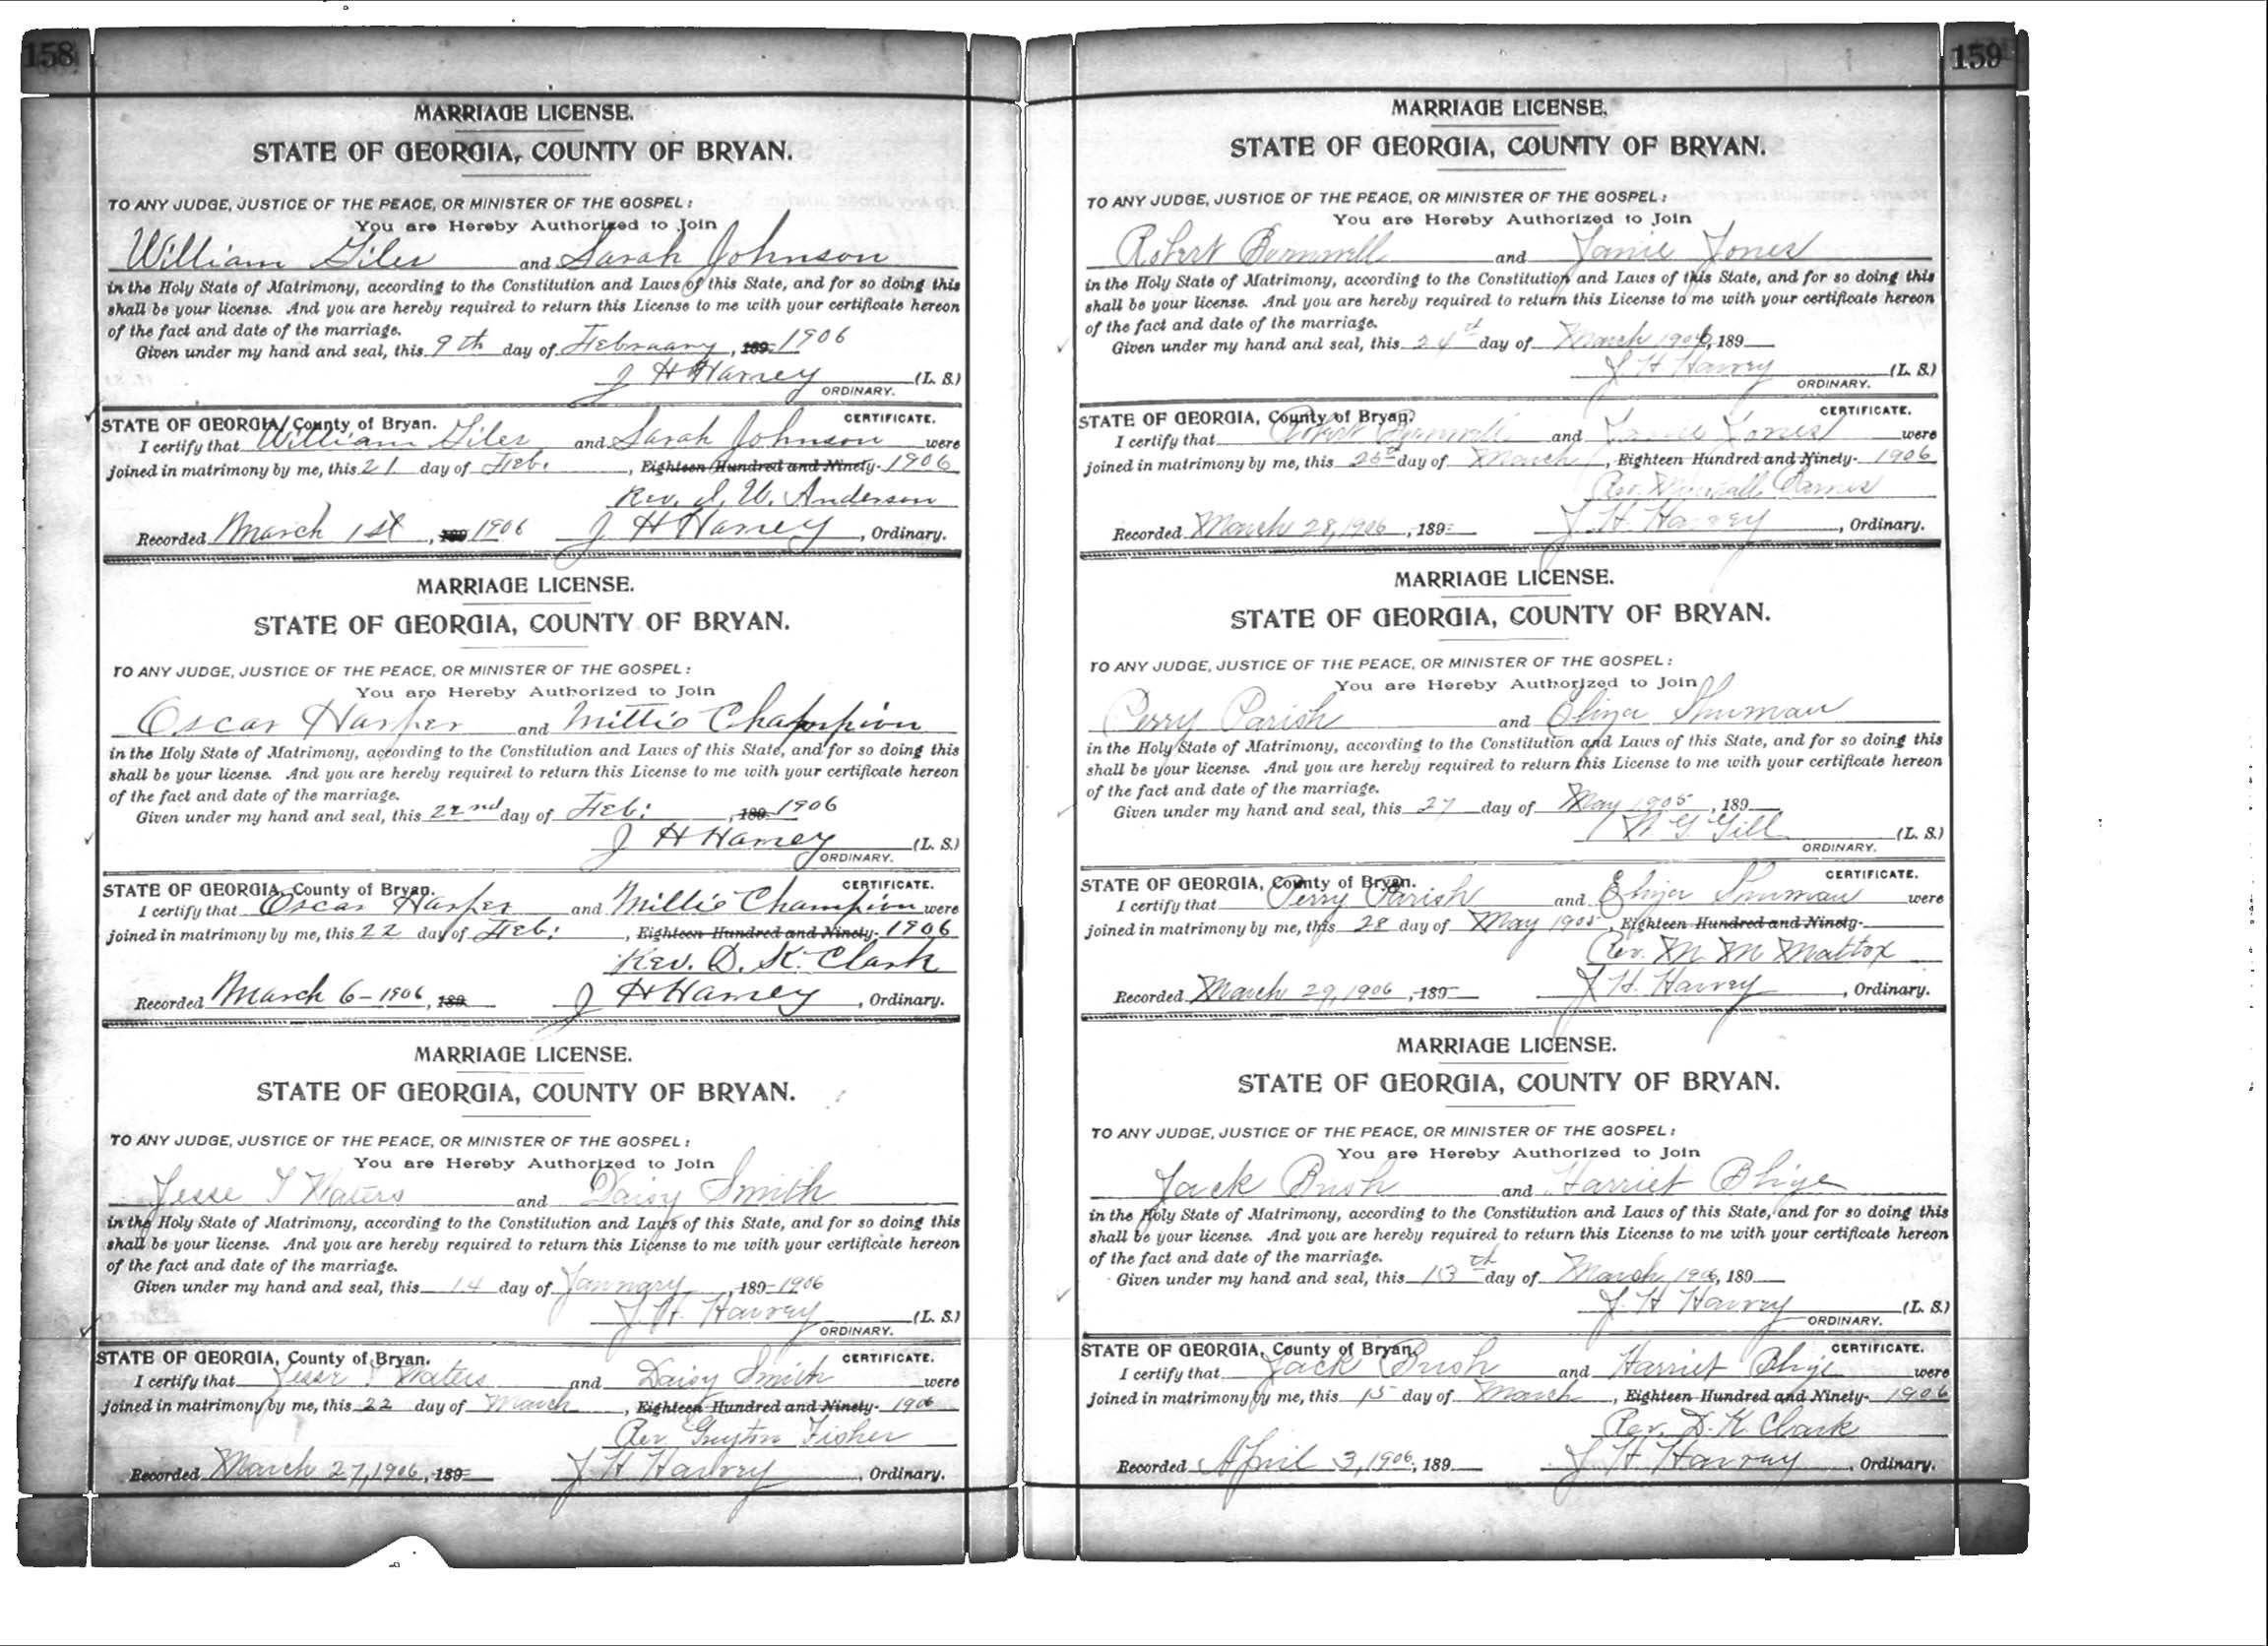 158
MARRIAGE LICENSE.
STATE OF GEORGIA, COUNTY OF BRYAN.
TO ANY JUDGE, JUSTICE OF THE PEACE, OR MINISTER OF THE GOSPEL:
You are Hereby Authorized to Join
William Giles and Sarah Johnson
in the Holy State of Matrimony, according to the Constitution and Laws of this State, and for so doing this
shall be your license. And you are hereby required to return this License to me with your certificate hereon
of the fact and date of the marriage.
Given under my hand and seal, this 9th day of February, 189 1906
J H Harvey (L. S.)
ORDINARY.
STATE OF GEORGIA, County of Bryan. CERTIFICATE.
I certify that William Giles and Sarah Johnson were
joined in matrimony by me, this 21 day of Feb. , Eighteen Hundred and Ninety- 1906
Rev. S. W. Anderson
Recorded March 1st , 189 1906 J H Harvey , Ordinary.
MARRIAGE LICENSE.
STATE OF GEORGIA, COUNTY OF BRYAN.
TO ANY JUDGE, JUSTICE OF THE PEACE, OR MINISTER OF THE GOSPEL:
You are Hereby Authorized to Join
Oscar Harper and Millie Champion
in the Holy State of Matrimony, according to the Constitution and Laws of this State, and for so doing this
shall be your license. And you are hereby required to return this License to me with your certificate hereon
of the fact and date of the marriage.
Given under my hand and seal, this 22nd day of Feb: , 189 1906
J H Harvey (L. S.)
ORDINARY.
STATE OF GEORGIA, County of Bryan. CERTIFICATE.
I certify that Oscar Harper and Millie Champion were
joined in matrimony by me, this 22 day of Feb: , Eighteen Hundred and Ninety- 1906
Rev. D. K. Clark
Recorded March 6-1906, 189 J H Harvey , Ordinary.
MARRIAGE LICENSE.
STATE OF GEORGIA, COUNTY OF BRYAN.
TO ANY JUDGE, JUSTICE OF THE PEACE, OR MINISTER OF THE GOSPEL:
You are Hereby Authorized to Join
Jesse T Waters and Daisy Smith
in the Holy State of Matrimony, according to the Constitution and Laws of this State, and for so doing this
shall be your license. And you are hereby required to return this License to me with your certificate hereon
of the fact and date of the marriage.
Given under my hand and seal, this 14 day of January , 189 1906
J. H. Harvey (L. S.)
ORDINARY.
STATE OF GEORGIA, County of Bryan. CERTIFICATE.
I certify that Jesse T Waters and Daisy Smith were
joined in matrimony by me, this 22 day of March , Eighteen Hundred and Ninety- 1906
Rev Guyton Fisher
Recorded March 27, 1906, 189 J H Harvey , Ordinary.
159
MARRIAGE LICENSE.
STATE OF GEORGIA, COUNTY OF BRYAN.
TO ANY JUDGE, JUSTICE OF THE PEACE, OR MINISTER OF THE GOSPEL:
You are Hereby Authorized to Join
Robert Barnwell and Janie Jones
in the Holy State of Matrimony, according to the Constitution and Laws of this State, and for so doing this
shall be your license. And you are hereby required to return this License to me with your certificate hereon
of the fact and date of the marriage.
Given under my hand and seal, this 24th day of March 1906, 189
J H Harvey (L. S.)
ORDINARY.
STATE OF GEORGIA, County of Bryan. CERTIFICATE.
I certify that Robert Barnwell and Janie Jones were
joined in matrimony by me, this 25th day of March , Eighteen Hundred and Ninety- 1906
Rev.
Recorded March 28, 1906 , 189 J. H. Harvey , Ordinary.
MARRIAGE LICENSE.
STATE OF GEORGIA, COUNTY OF BRYAN.
TO ANY JUDGE, JUSTICE OF THE PEACE, OR MINISTER OF THE GOSPEL:
You are Hereby Authorized to Join
Perry Parish and Eliza Shuman
in the Holy State of Matrimony, according to the Constitution and Laws of this State, and for so doing this
shall be your license. And you are hereby required to return this License to me with your certificate hereon
of the fact and date of the marriage.
Given under my hand and seal, this 27 day of May 1905 , 189
Gill (L. S.)
ORDINARY.
STATE OF GEORGIA, County of Bryan. CERTIFICATE.
I certify that Perry Parish and Eliza Shuman were
joined in matrimony by me, this 28 day of May 1905 , Eighteen Hundred and Ninety-
Rev. M. M Mattox
Recorded March 29, 1906 , 189 J. H. Harvey , Ordinary.
MARRIAGE LICENSE.
STATE OF GEORGIA, COUNTY OF BRYAN.
TO ANY JUDGE, JUSTICE OF THE PEACE, OR MINISTER OF THE GOSPEL:
You are Hereby Authorized to Join
Jack Bush and Harriet Blige
in the Holy State of Matrimony, according to the Constitution and Laws of this State, and for so doing this
shall be your license. And you are hereby required to return this License to me with your certificate hereon
of the fact and date of the marriage.
Given under my hand and seal, this 13th day of March 1906, 189
J. H Harvey (L. S.)
ORDINARY.
STATE OF GEORGIA, County of Bryan. CERTIFICATE.
I certify that Jack Bush and Harriet Blige were
joined in matrimony by me, this 15 day of March , Eighteen Hundred and Ninety- 1906
Rev. D. K. Clark
Recorded April 3, 1906, 189 J H Harvey , Ordinary.